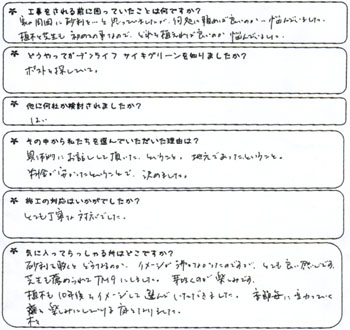 * 工事をされる前に困っていたことは何ですか?
家の周囲に砂利を と思っていましたが、何処に頼めば良いのか… 悩んでいました。
植木も芝生も 初めての事なので、どれを植えれば良いのか 悩んでいました。
* どうやってガーデンライフ サイキグリーンを知りましたか?
ポストを探していて。
* 他に何社か検討されましたか?
はい
* その中から私たちを選んでいただいた理由は?
具体的にお話しして頂いた、ということ。地元であったということ。
料金が安かったということで、決めました。
* 施工の対応はいかがでしたか?
とても丁寧な対応でした。
* 気に入ってらっしゃる所はどこですか?
砂利を敷くと どうなるのか、イメージが 湧かなかったのですが、とても良い感じです。
芝生も薦められてTM9にしました。 芽吹くのが楽しみです。
植木も 10年後をイメージして 選んでいただきました。 季節毎に変わっていく
庭を楽しみにしている